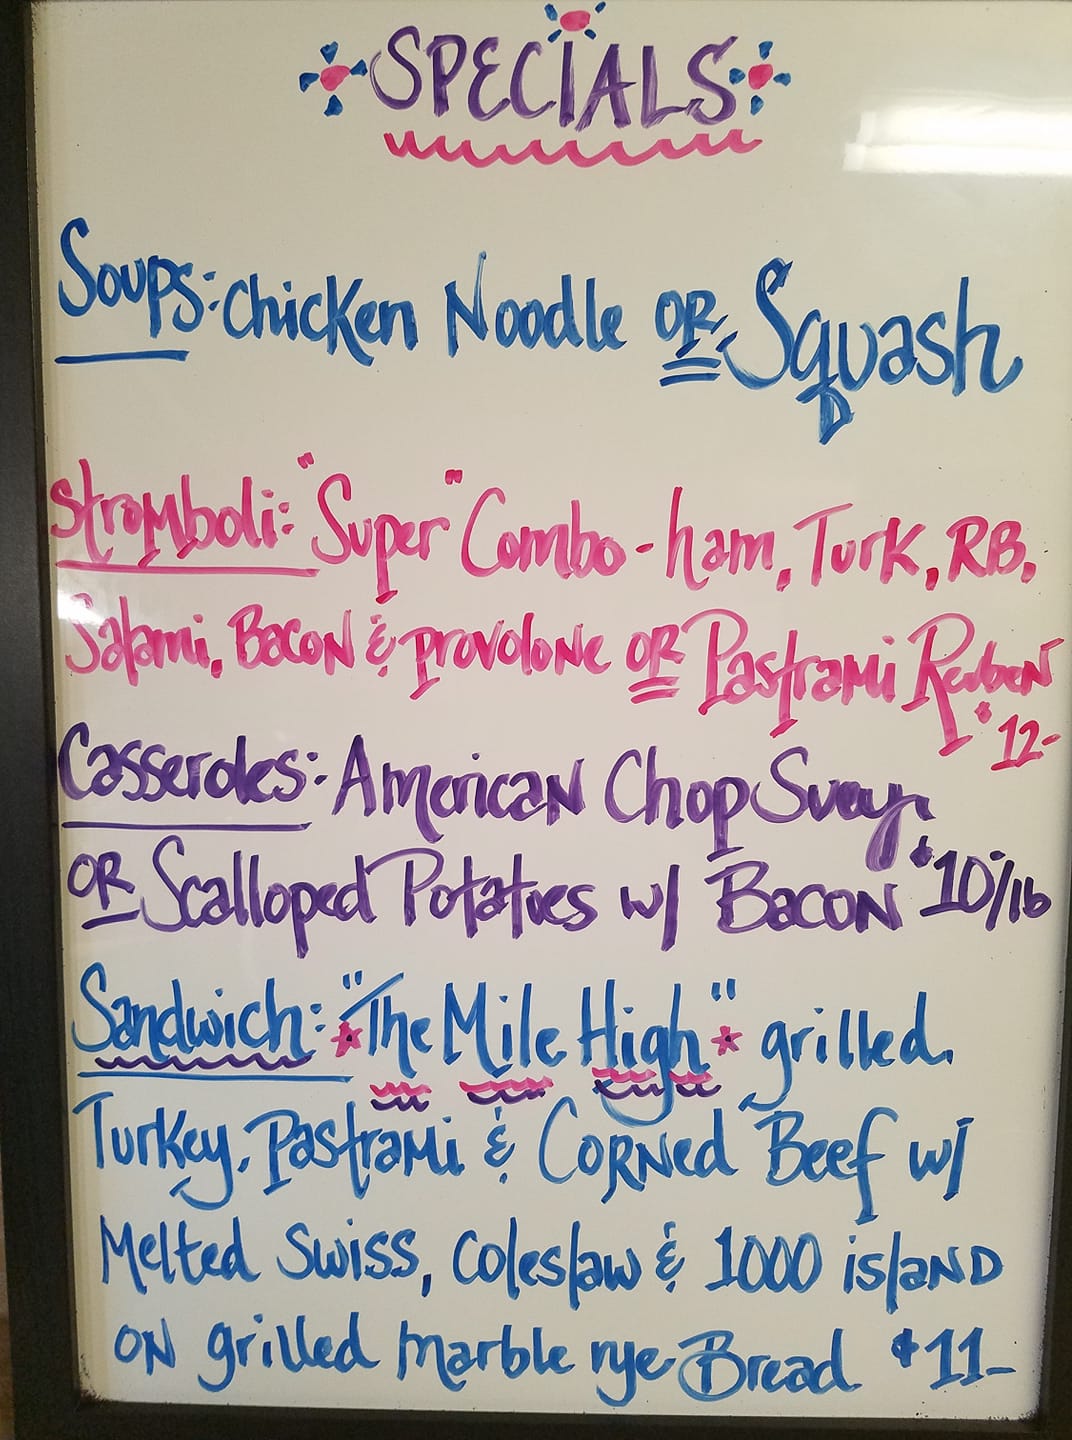 SPECIALS
Soups: Chicken Noodle OR Squash
Stromboli: "Super" Combo - ham, Turk, RB,
Salami, Bacon & provolone OR Pastrami Reuben
$12-
Casseroles: American Chop Suey
OR Scalloped Potatoes w/ Bacon $10/lb
Sandwich: "The Mile High" grilled
Turkey, Pastrami & Corned Beef w/
Melted Swiss, Coleslaw & 1000 island
ON grilled marble rye Bread $11-